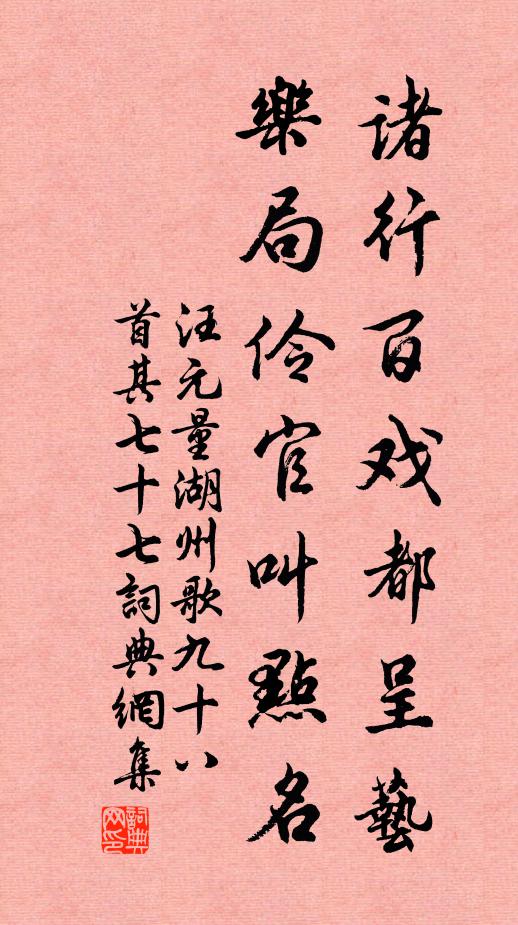 諸行百戏都呈藝
樂局伶官叫點名
汪元量湖州歌九十八
首其七十七詞典網集
詞典
网印